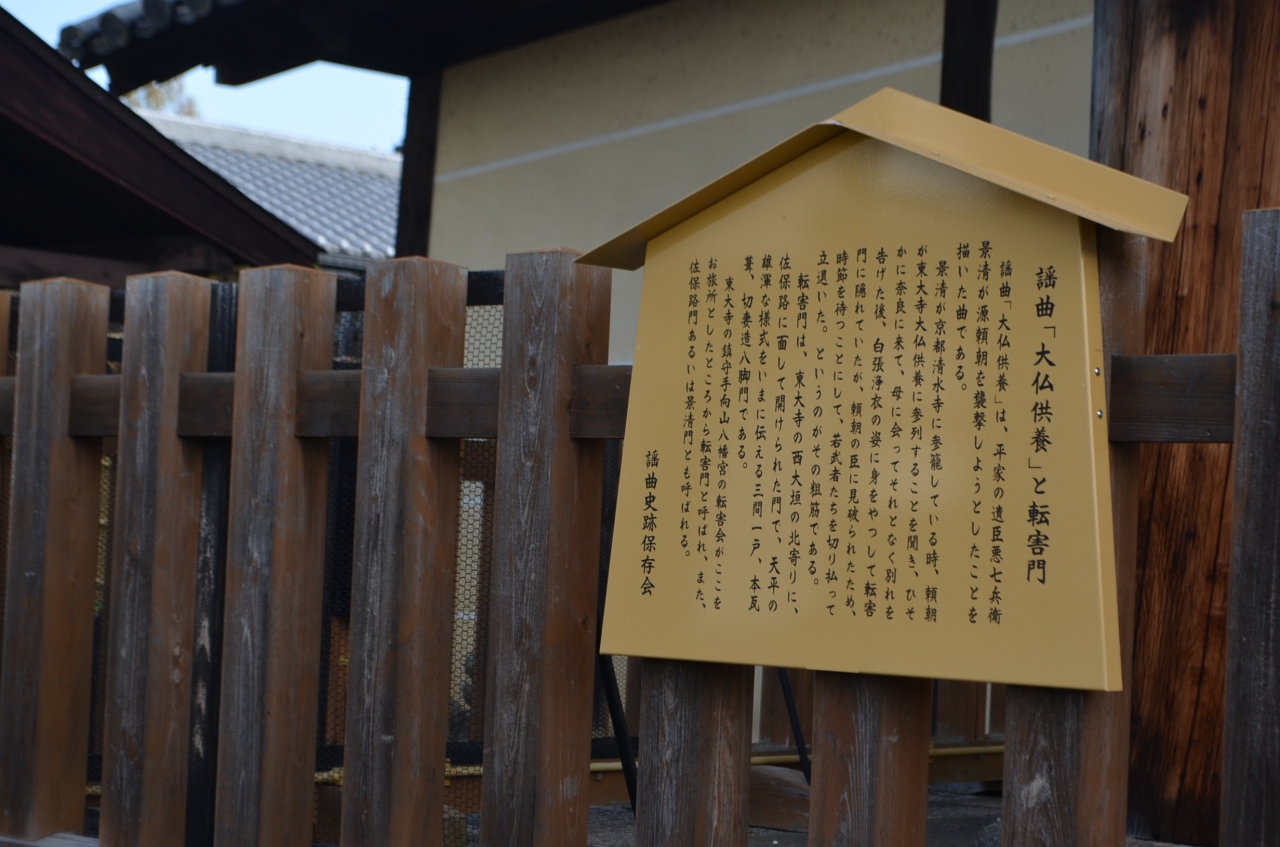 謡曲「大仏供養」と転害門
謡曲「大仏供養」は、平家の遺臣悪七兵衛
景清が源頼朝を襲撃しようとしたことを
描いた曲である。
景清が京都清水寺に参籠している時、頼朝
が東大寺大仏供養に参列することを聞き、ひそ
かに奈良に来て、母に会ってそれとなく別れを
告げた後、白張浄衣の姿に身をやつして転害
門に隠れていたが、頼朝の臣に見破られたため、
時節を待つことにして、若武者たちを切り払って
立退いた。というのがその粗筋である。
転害門は、東大寺の西大垣の北寄りに、
佐保路に面して開けられた門で、天平の
雄渾な様式をいまに伝える三間一戸、本瓦
葺、切妻造八脚門である。
東大寺の鎮守手向山八幡宮の転害会がここを
お旅所としたところから転害門と呼ばれ、また、
佐保路門あるいは景清門とも呼ばれる。
謡曲史跡保存会